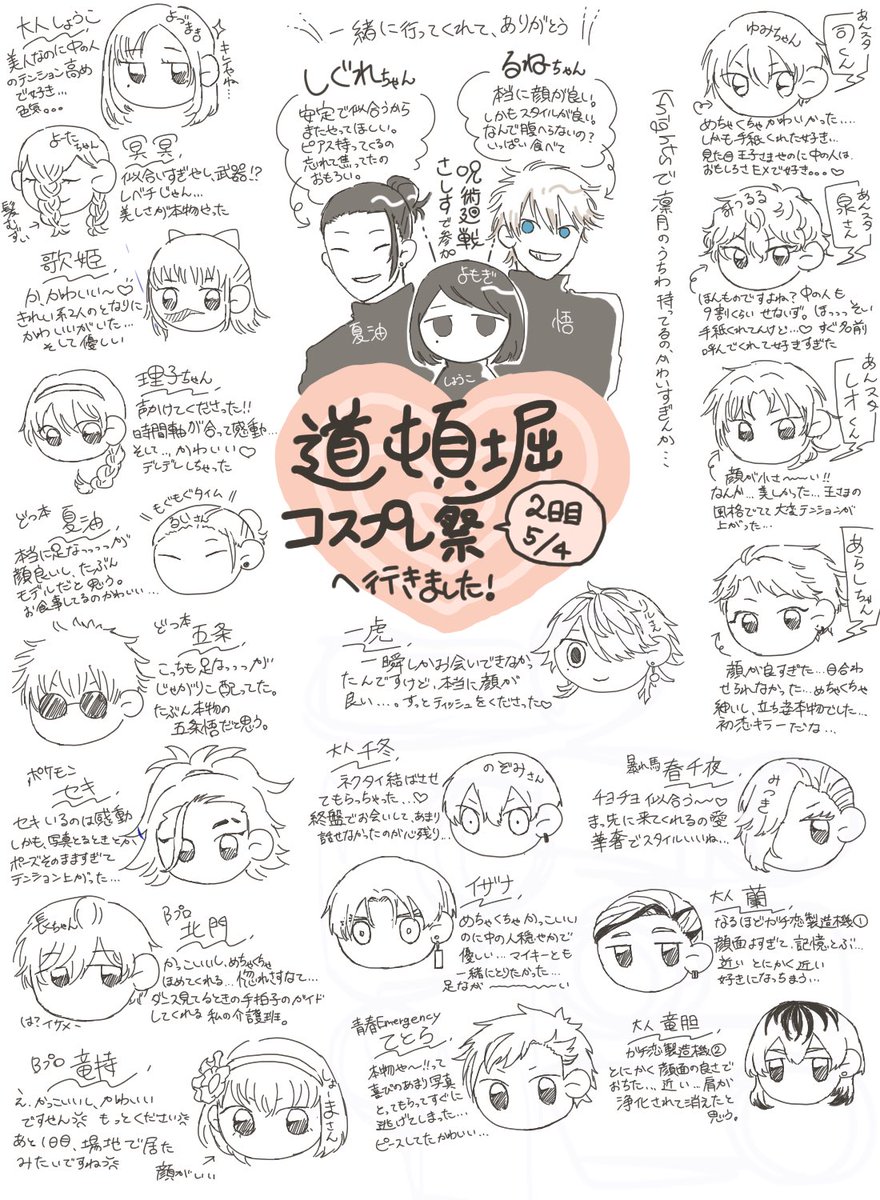 一緒に行ってくれて、ありがとう
しぐれちゃん
安定で似合うから
またやってほしい。
ピアス持ってくるの
忘れて焦ってたの
おもろい。
るねちゃん
本当に顔が良い。
しかもスタイルが良い。
なんで腹へらないの?
いっぱい食べて
呪術廻戦
さしすで参加
夏油
よもぎ
しょうこ
悟
道頓堀
コスプレ祭
2日目
5/4
へ行きました!
大人しょうこ
よづきさん
美人なのに中の人
のテンション高め
で好き…
色気。。。
キレやね…
冥冥
よーたちゃん
似合いすぎやし、武器!?
レベチじゃん…
美しさが本物やった
髪むずい
歌姫
か、かわいい~♡
きれい系2人のとなりに
かわいいがいた…
そして優しい
理子ちゃん
声かけてくださった!!
時間軸が合って感動…
そして…かわいい♡
デレデレしちゃった
どっ本 夏油
もぐもぐタイム
るいさん
本当に足なっっっっが
顔良いし、たぶん
モデルだと思う。
お食事してるのかわいい…
どっ本 五条
こっちも足なっっっが
じゃがりこ配ってた。
たぶん本物の
五条悟だと思う。
ポケモン
セキ
セキいるのは感動
しかも、写真とるときとか
ポーズそのまますぎて
テンション上がった…
長ちゃん
Bプロ
北門
かっこいいし、めちゃくちゃ
ほめてくれる…惚れさすなて…
ダンス見てるときの手拍子のガイド
してくれる 私の介護班。
は?イケメン
Bプロ 竜持
え、かっこいいし、かわいい
ですせん もっとください
あと1日目、場地で居た
みたいですね
顔がいい
しょーまさん
Knightsで凛月のうちわ持ってるの、かわいすぎんか…
あんスタ
司くん
ゆみちゃん
めちゃくちゃかわいかった…
しかも手紙くれた好き…
見た目王子さまやのに中の人は、
おもしろさEXで好き。。。♡
あんスタ
泉さん
まっるる
ほんものですよね?中の人も
9割くらい せないず。ほっっっそい
手紙くれてんけど…♡すぐ名前
呼んでくれて好きすぎた
あんスタ
レオくん
顔が小さ~~い!!
なんか…美しかった…王さまの
風格でてて大変テンションが
上がった…
あらしちゃん
顔が良すぎた…目合わ
せられなかった…めちゃくちゃ
細いし、立ち姿本物でした…
初恋キラーだな…
一虎
一瞬しかお会いできなか
たんですけど、本当に顔が
良い…。ずっとティッシュをくださった♡
大人 千冬
のぞみさん
ネクタイ結ばさせ
てもらっちゃった…♡
終盤でお会いして、あまり
話せなかったのが心残り…
暴れ馬 春千夜
みつき
チヨチヨ似合う~~♡
まっ先に来てくれるの愛
華奢でスタイルいいね…
イザナ
めちゃくちゃかっこいい
のに中の人穏やかで
優しい…マイキーとも
一緒にとりたかった…
足なが~~~い
大人 蘭
なるほどガチ恋製造機①
顔面よすぎて、記憶とぶ…
近い とにかく近い
好きになっちまう…
青春Emergency
てとら
本物や~!!って
喜びのあまり写真
とってもらってすぐに
逃げてしまった…
ピースしてたかわいい…
大人 竜胆
ガチ恋製造機②
とにかく顔面の良さで
おちた…近い…肩が
浄化されて消えたと
思う。